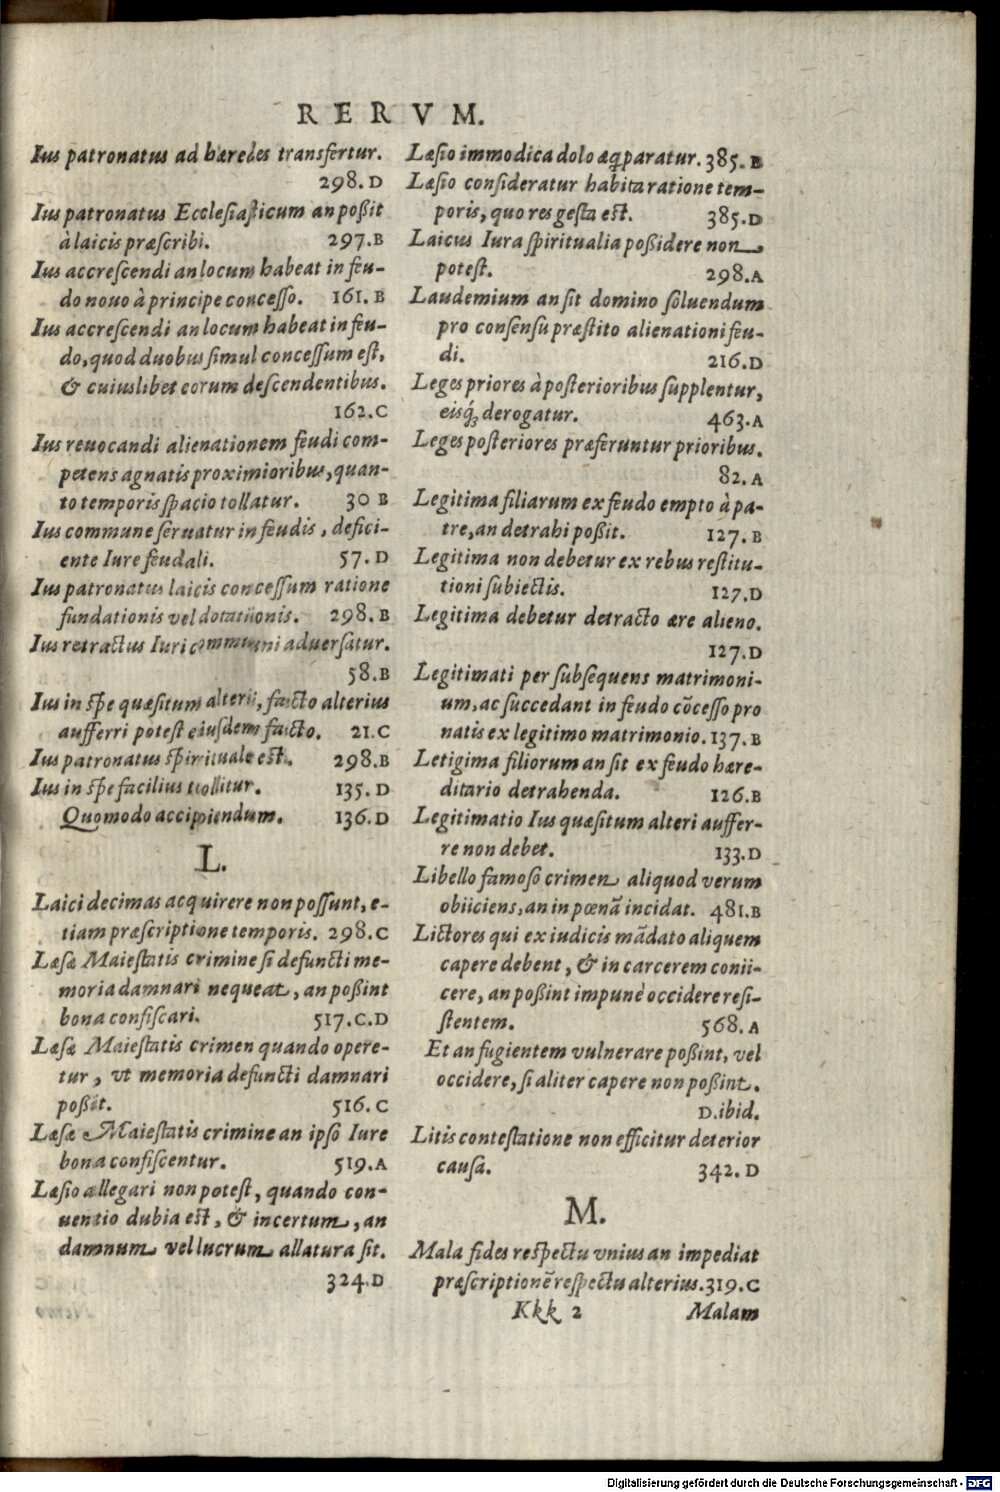 RERVM.
Ius patronatus ad hæredes transfertur.
298.D
Ius patronatus Ecclesiasticum an poßit
à laicis præscribi. 297.B
Ius accrescendi an locum habeat in feu-
do nouo à principe concesso. 161.B
Ius accrescendi an locum habeat in feu-
do, quod duobus simul concessum est,
& cuiuslibet eorum descendentibus.
162.C
Ius reuocandi alienationem feudi com-
petens agnatis proximioribus, quan-
to temporis spacio tollatur. 30 B
Ius commune seruatur in feudis, defici-
ente Iure feudali. 57.D
Ius patronatus laicis concessum ratione
fundationis vel dotatiionis. 298.B
Ius retractus Iuri communi aduersatur.
58.B
Ius in spe quæsitum alterii, facto alterius
aufferri potest eiusdem facto. 21.C
Ius patronatus spirituale est. 298.B
Ius in spe facilius tollitur. 135.D
Quomodo accipiendum. 136.D
L.
Laici decimas acquirere non possunt, e-
tiam præscriptione temporis. 298.C
Læsæ Maiestatis crimine si defuncti me-
moria damnari nequeat, an poßint
bona confiscari. 517.C.D
Læsæ Maiestatis crimen quando opere-
tur, vt memoria defuncti damnari
poßit. 516.C
Læsæ Maiestatis crimine an ipso Iure
bona confiscentur. 519.A
Læsio allegari non potest, quando con-
uentio dubia est, & incertum, an
damnum vel lucrum allatura sit.
324.D
Læsio immodica dolo æq̃paratur. 385.B
Læsio consideratur habita ratione tem-
poris, quo res gesta est. 385.D
Laicus Iura spiritualia poßidere non
potest. 298.A
Laudemium an sit domino soluendum
pro consensu præstito alienationi feu-
di. 216.D
Leges priores à posterioribus supplentur,
eisq́; derogatur. 463.A
Leges posteriores præferuntur prioribus.
82.A
Legitima filiarum ex feudo empto à pa-
tre, an detrahi poßit. 127.B
Legitima non debetur ex rebus restitu-
tioni subiectis. 127.D
Legitima debetur detracto ære alieno.
127.D
Legitimati per subsequens matrimoni-
um, ac succedant in feudo cõcesso pro
natis ex legitimo matrimonio. 137.B
Letigima filiorum an sit ex feudo hære-
ditario detrahenda. 126.B
Legitimatio Ius quæsitum alteri auffer-
re non debet. 133.D
Libello famoso crimen aliquod verum
obiiciens, an in pœnã incidat. 481.B
Lictores qui ex iudicis mãdato aliquem
capere debent, & in carcerem conii-
cere, an poßint impunè occidere resi-
stentem. 568.A
Et an fugientem vulnerare poßint, vel
occidere, si aliter capere non poßint.
D.ibid.
Litis contestatione non efficitur deterior
causa. 342.D
M.
Mala fides respectu vnius an impediat
præscriptionẽ respectu alterius. 319.C
Kkk 2 Malam
Digitalisierung gefördert durch die Deutsche Forschungsgemeinschaft - DFG